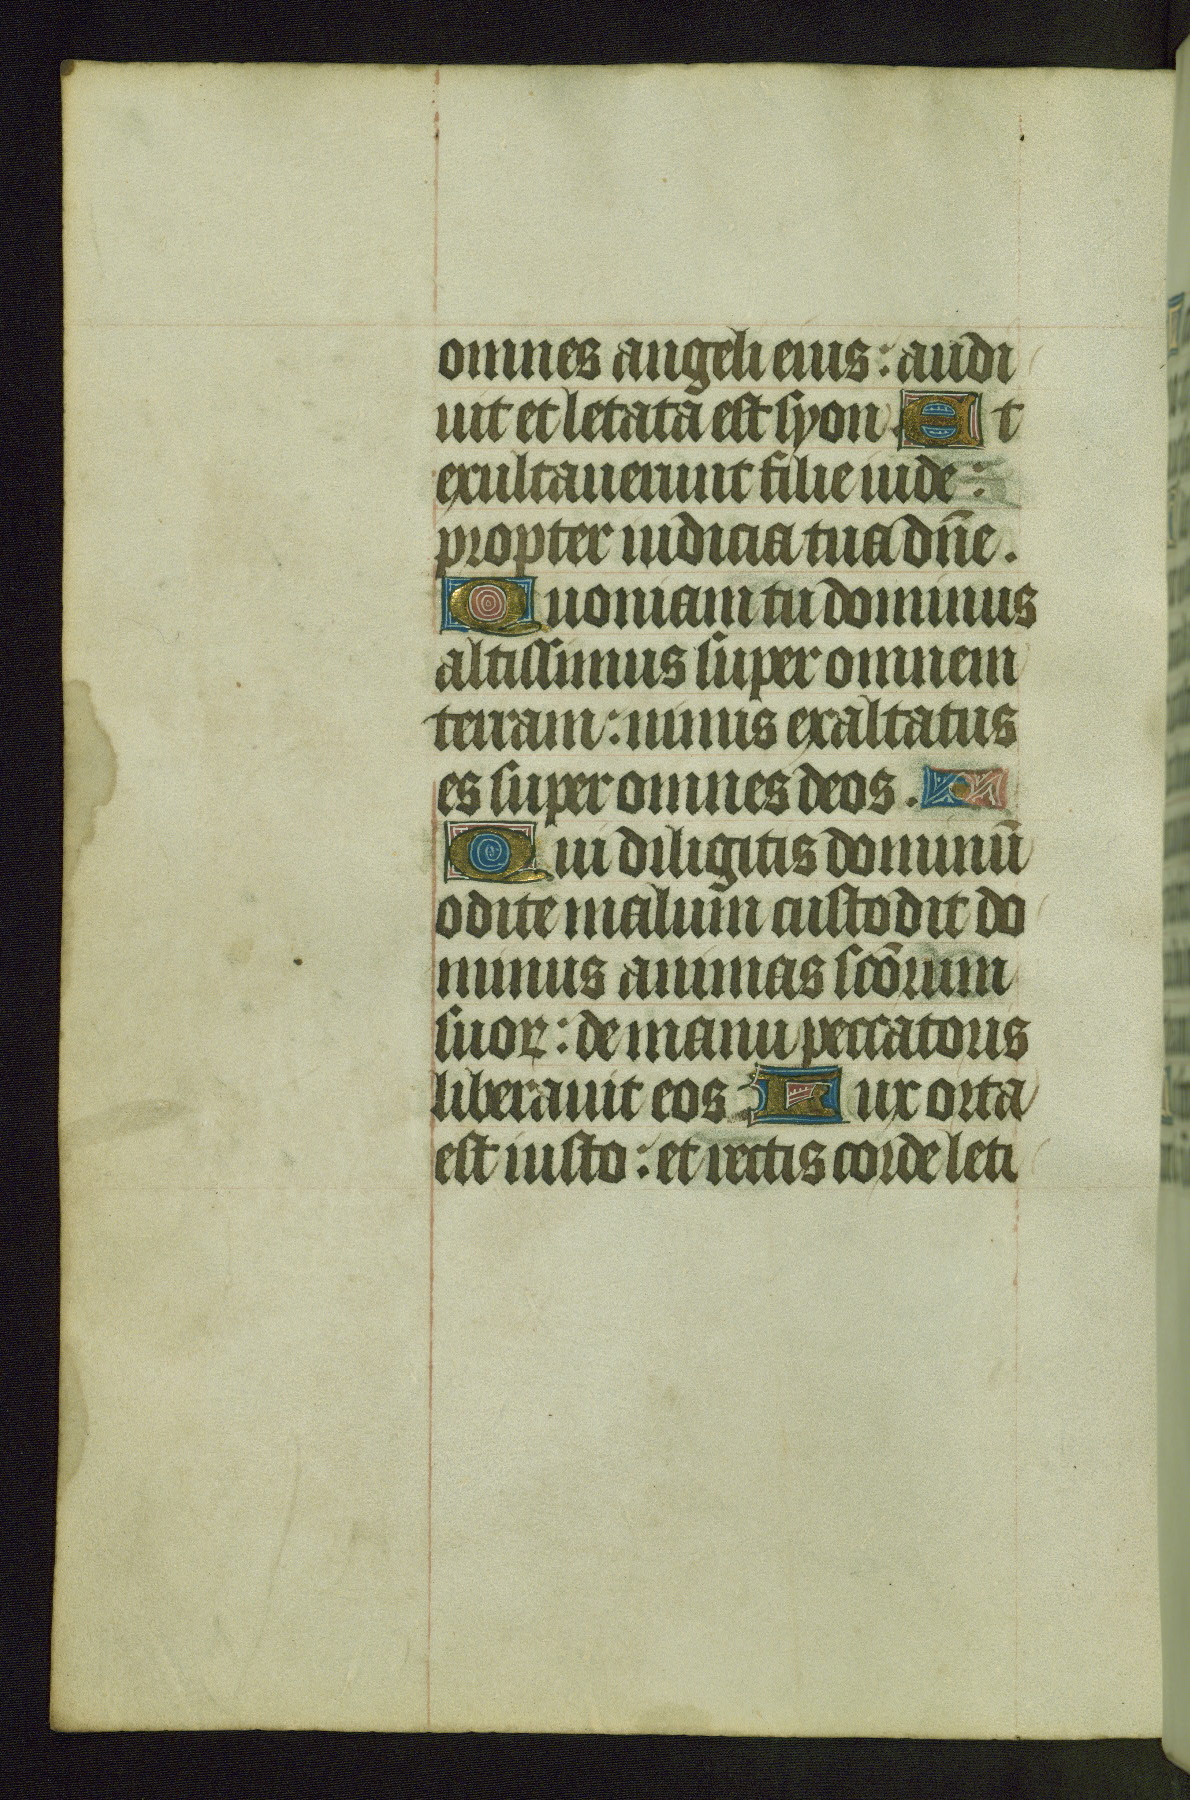 omnes angeli eius : audi
uit et letata est syon . Et
exultauerunt filie iude :
propter iudicia tua dn̄e .
Quoniam tu dominus
altissimus super omnem
terram : nimis exaltatus
es super omnes deos .
Qui diligitis dominū
odite malum custodit do
minus animas scōrum
suoꝝ : de manu peccatoris
liberauit eos . Lux orta
est iusto : et rectis corde leti